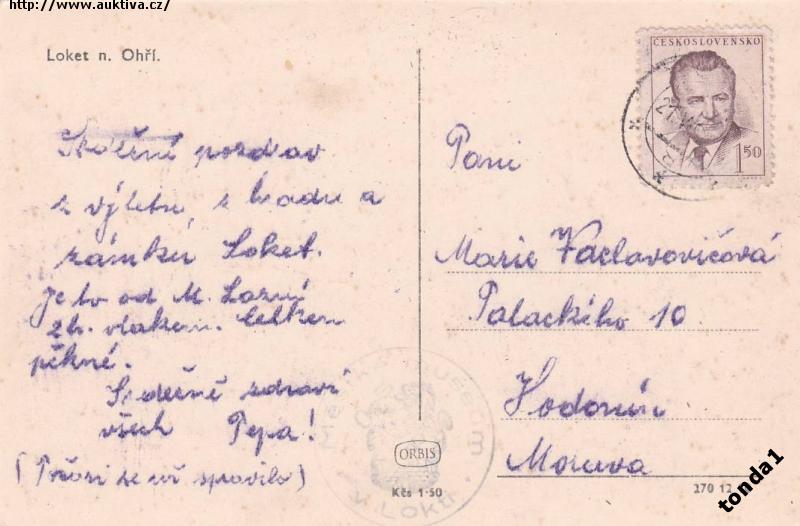 http://www.auktiva.cz/
Loket n. Ohří.
ČESKOSLOVENSKO
1 50
Srdečné pozdrav
z výletu, z hradu a
zámku Loket.
Je to od M. Lázní
2 h. vlakem. Celkem
pěkné.
Srdečně zdraví
všech Pepa!
(Počasí se už spravilo)
Paní
Marie Václavovičová
Palackého 10
Hodonín
Morava
ORBIS
Kčs 1·50
270 12
v Lokti
tonda1